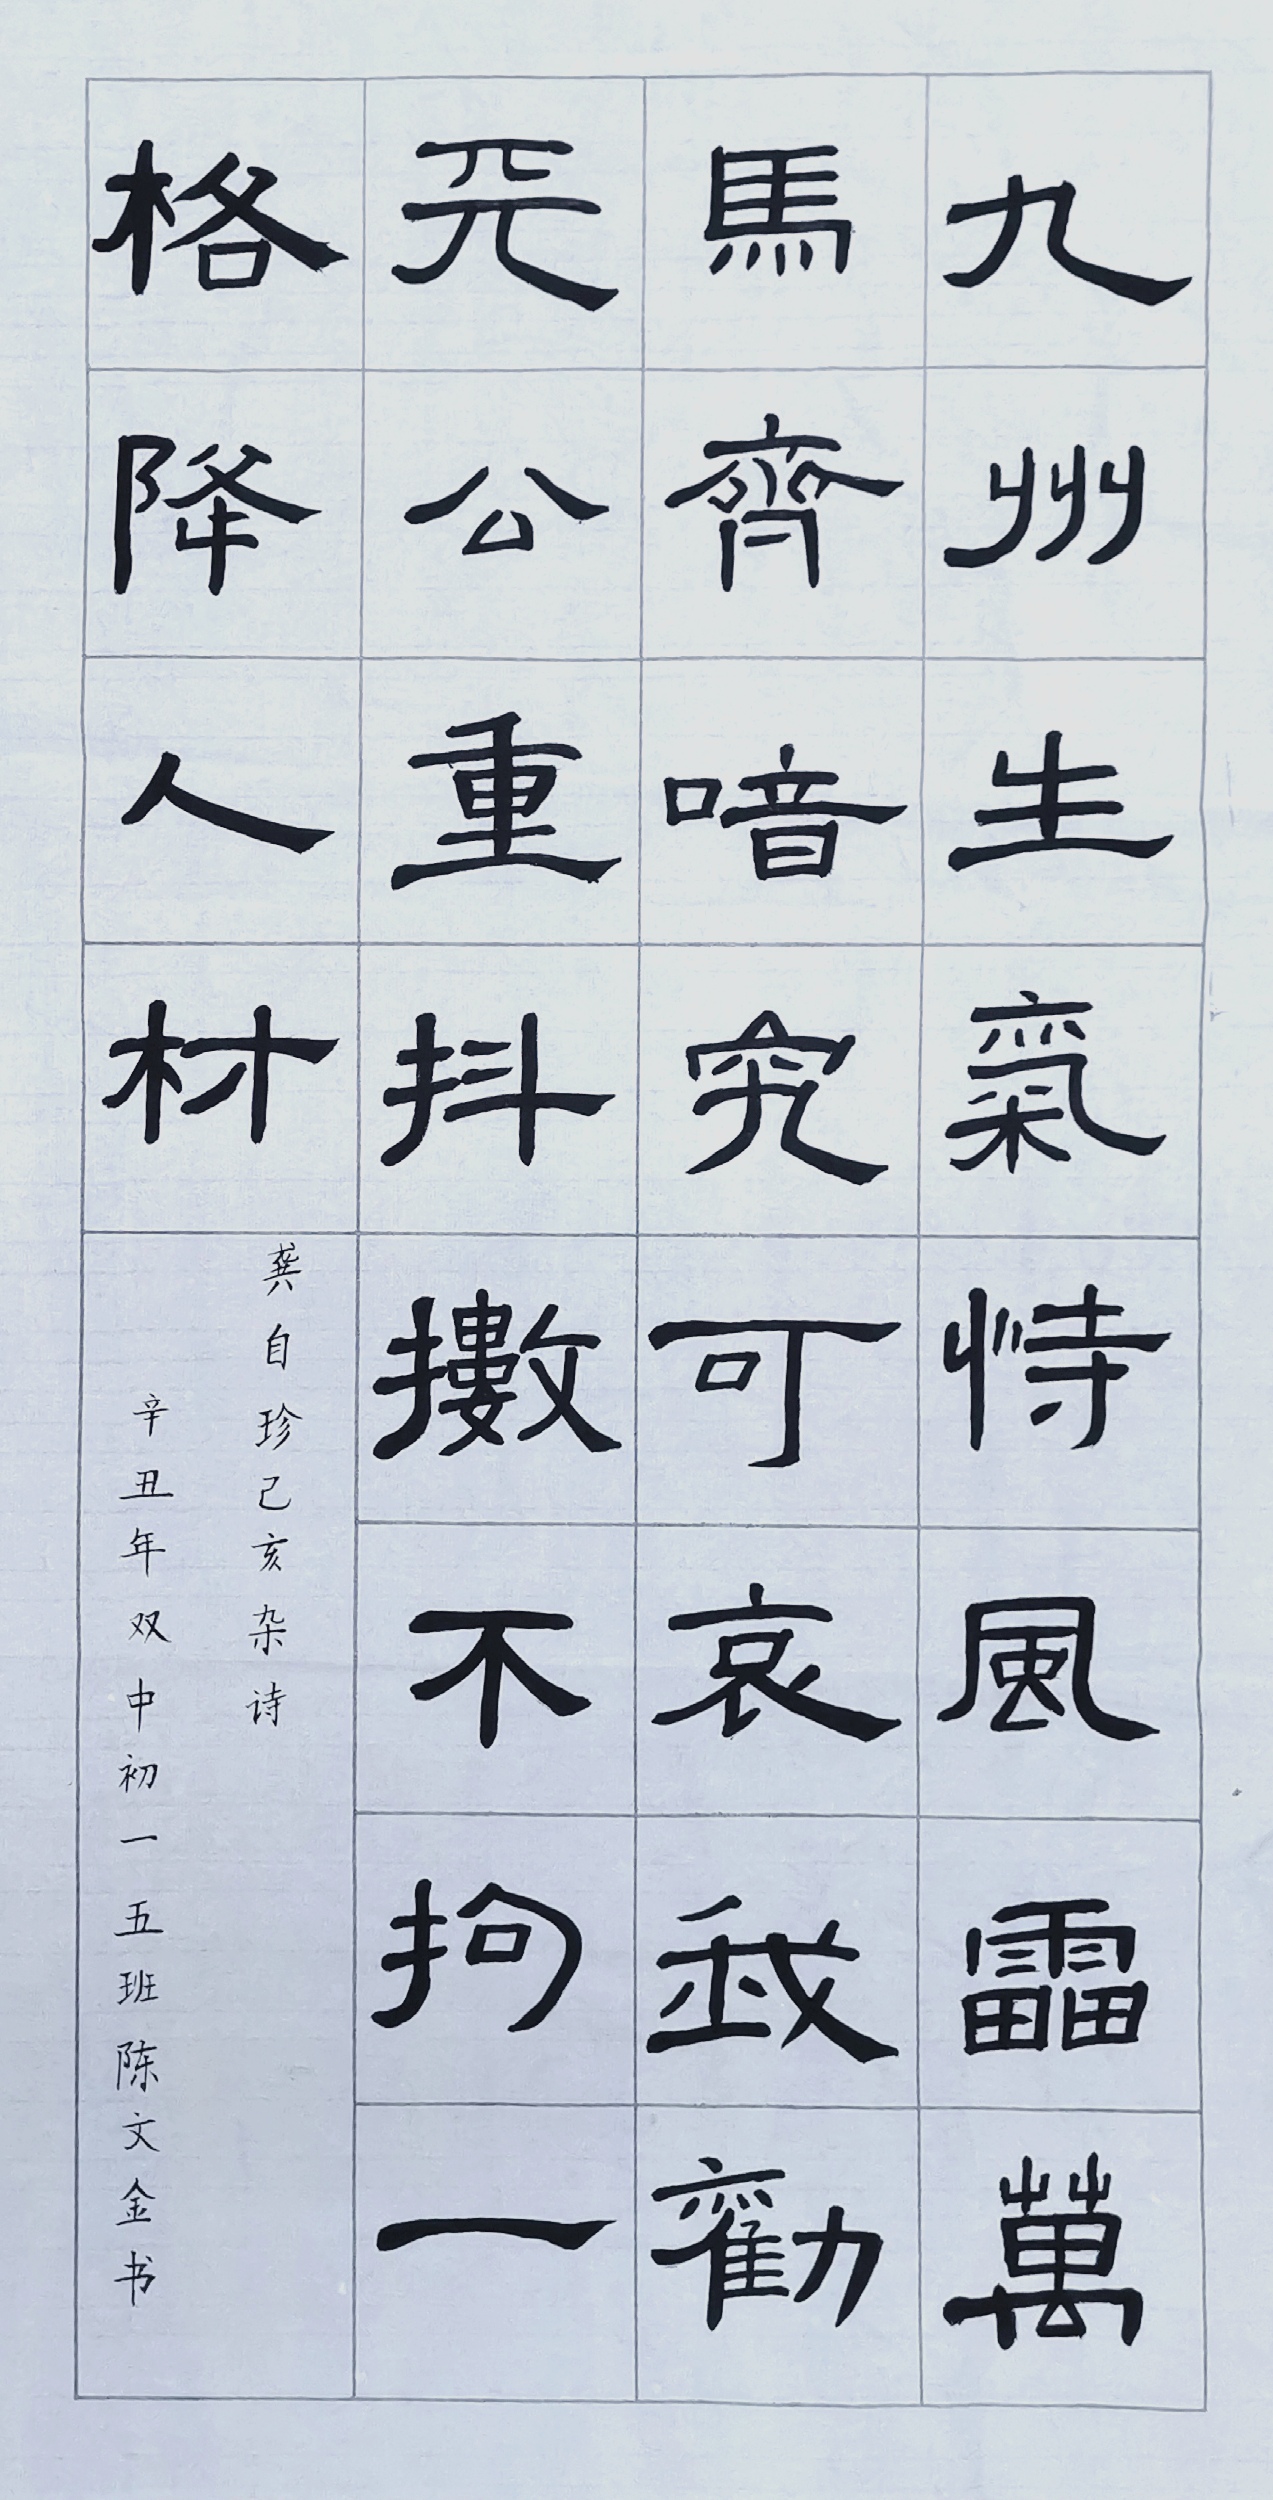 九州生氣恃風靁萬
馬齊喑究可哀我勸
天公重抖擻不拘一
格降人材
龚自珍己亥杂诗
辛丑年双中初一五班陈文金书